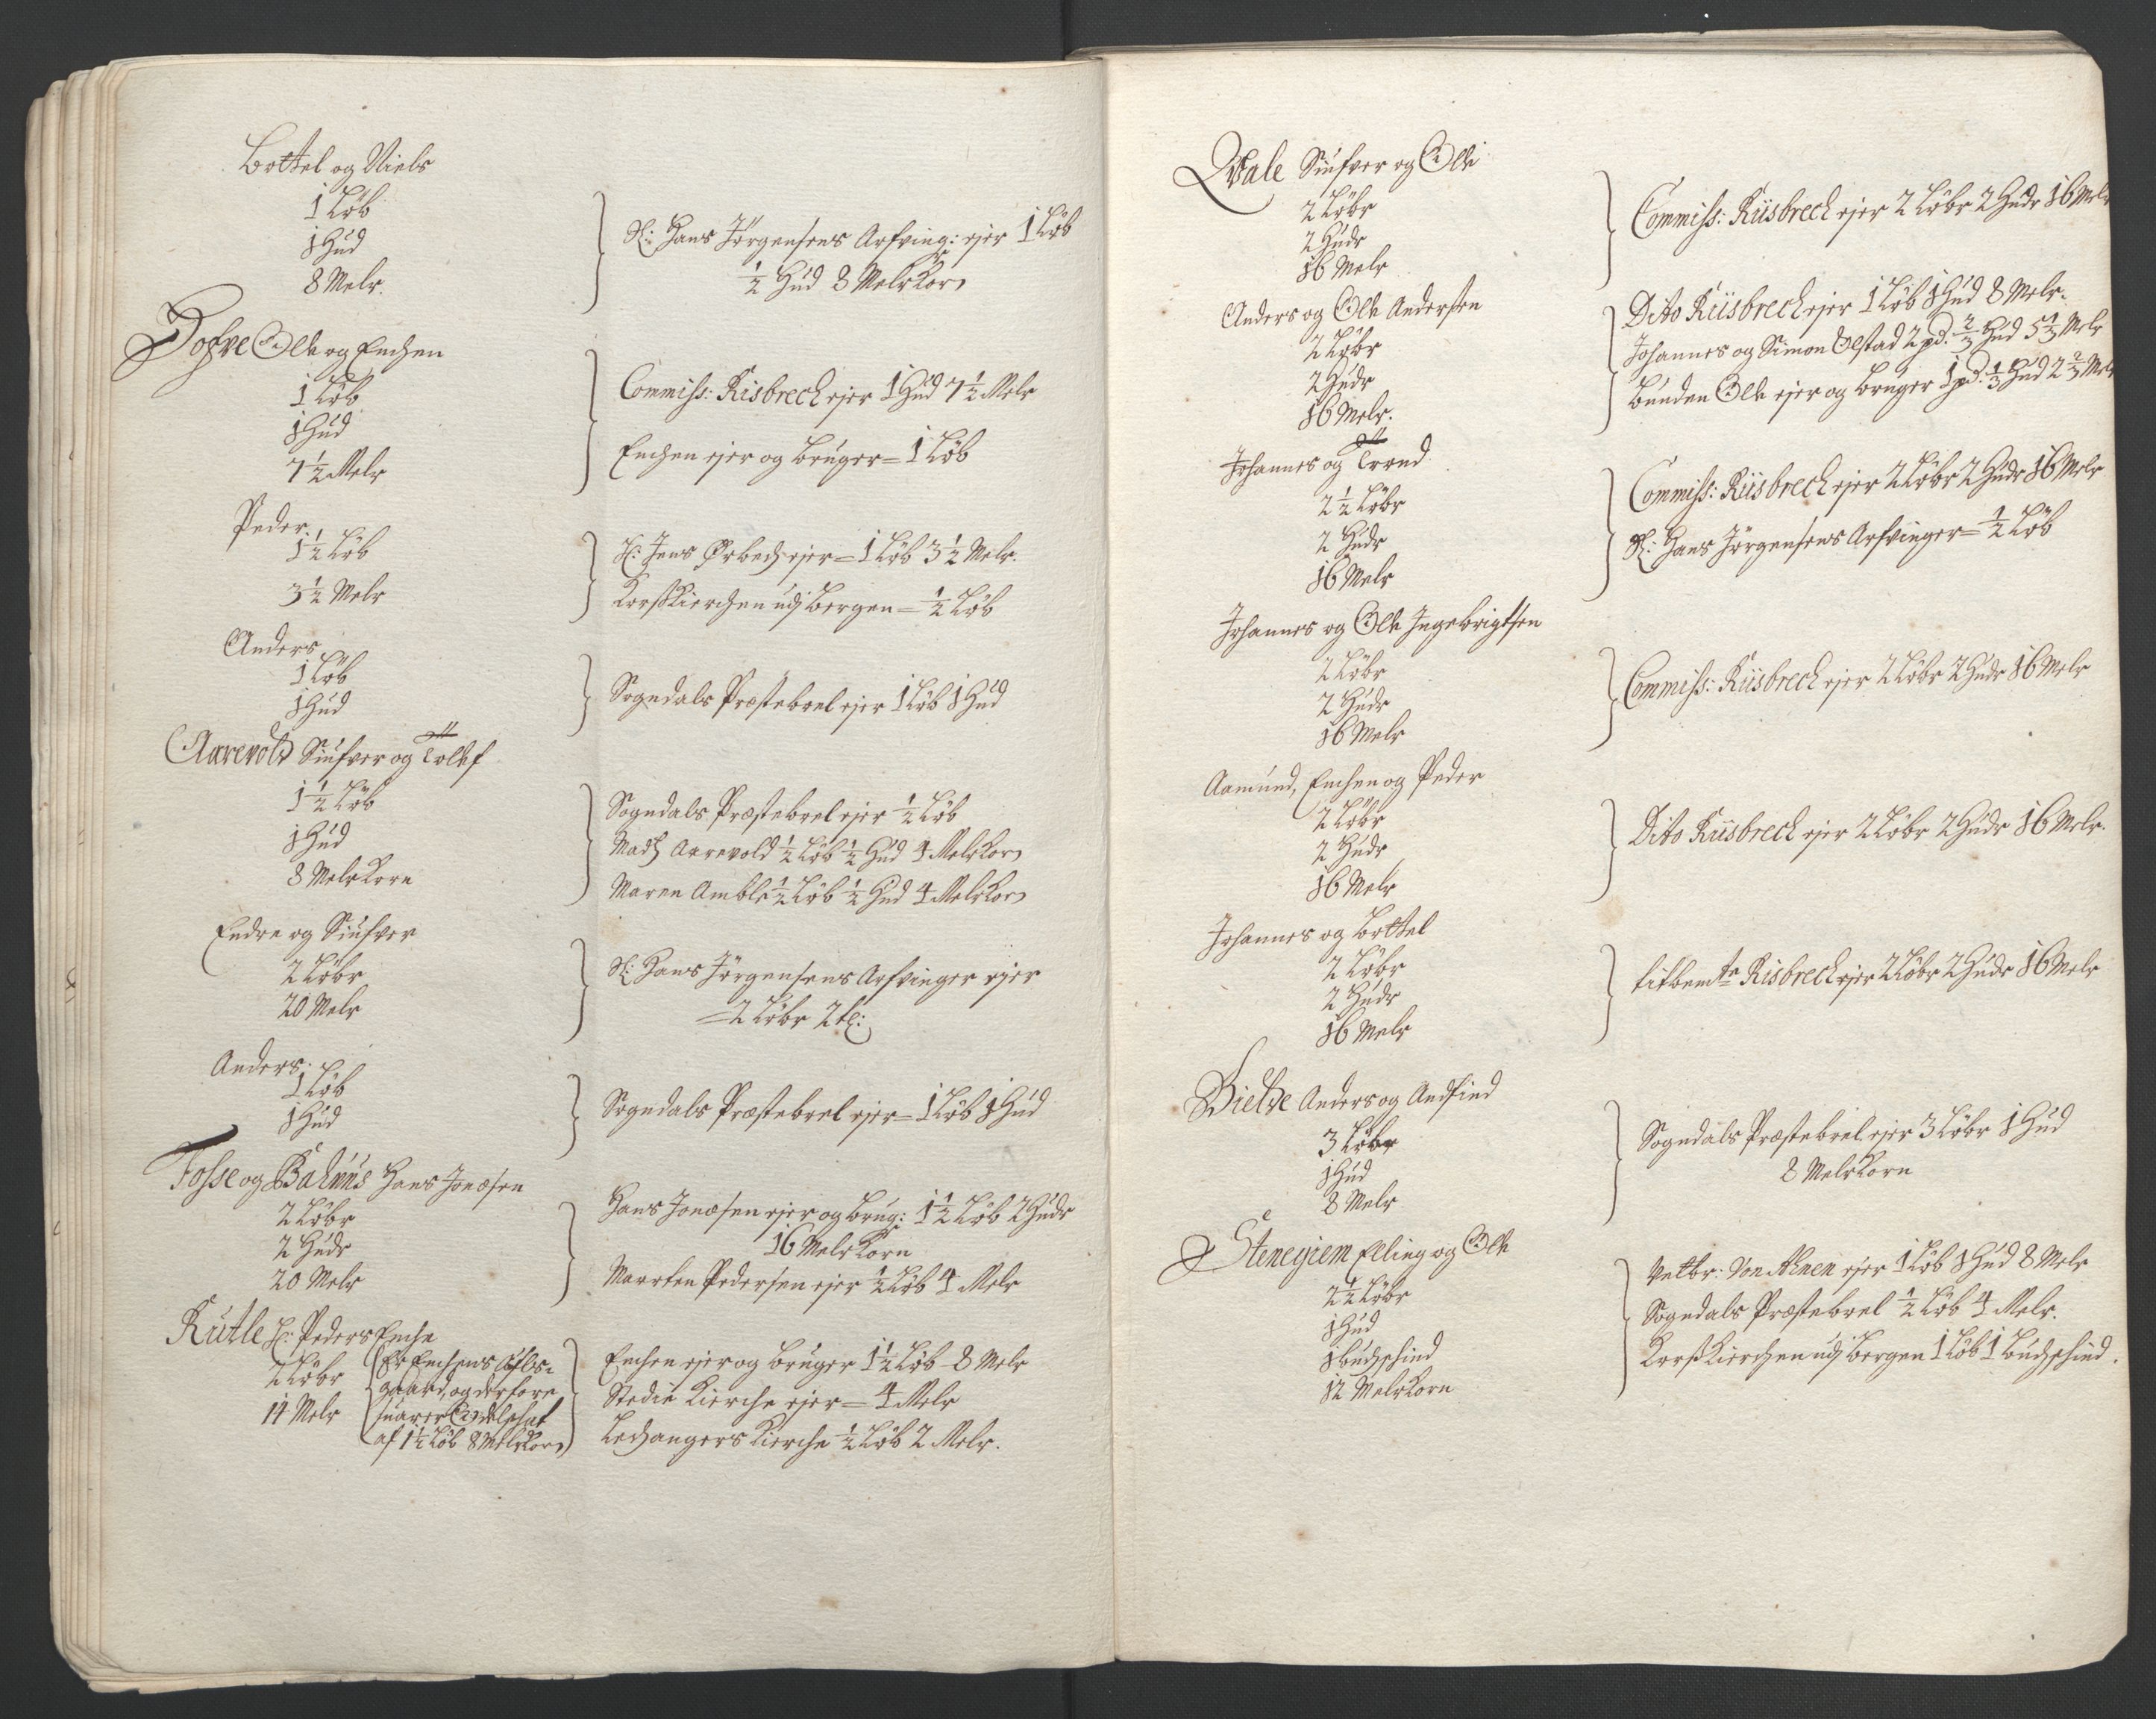 Bottel og Niels
1 Løb
1 Hud
8 Melr.
Sl: Hans Jørgensens Arfving: ejer 1 Løb
½ Hud 8 Melr Korn
Dofve Ole og Enchen
1 Løb
1 Hud
7½ Melr
Commiss: Risbrech ejer 1 Hud 7½ Melr
Enchen ejer og bruger = 1 Løb
Peder.
1½ Løb
3½ Melr
H: Jens Ørbech ejer = 1 Løb 3½ Melr.
Korskierchen udj Bergen = ½ Løb
Anders
1 Løb
1 Hud
Sogndals Præsteboel ejer 1 Løb 1 Hud
Aarevold Siufver og Tollef
1½ Løb
1 Hud
8 Melr Korn
Sogndals Præsteboel ejer ½ Løb
Mads Aarevold ½ Løb ½ Hud 4 Melr Korn
Maren Amble ½ Løb ½ Hud 4 Melr Korn
Endre og Siufver
2 Løbr
20 Melr
Sl: Hans Jørgensens Arfvinger ejer
= 2 Løbr
Anders.
1 Løb
1 Hud
Sogndals Præsteboel ejer = 1 Løb 1 Hud
Fosse og Hans Jonæsen
2 Løbr
2 Hudr
20 Melr
Hans Jonæsen ejer og brug: 1½ Løb 2 Hudr
16 Melr Korn
Maarten Pedersen ejer ½ Løb 4 Melr
Rutle H: Peders Enche
2 Løbr
14 Melr
Er Enchens Afls-
gaard, og derfore
suarer Odelskat
af 1½ Løb 8 Melr Korn
Enchen ejer og bruger 1½ Løb 8 Melr
Stedie Kierche ejer = 4 Melr
Ledsangers Kierche ½ Løb 2 Melr.
Qvale Siufver og Ole
2 Løbr
2 Hudr
16 Melr
Commiss: Riisbrech ejer 2 Løbr 2 Hudr 16 Melr
Anders og Ole Andersen
2 Løbr
2 Hudr
16 Melr.
Dito Riisbrech ejer 1 Løb 1 Hud 8 Melr.
Johannes og Simon Olstad 2 pd: ⅔ Hud 5⅓ Melr
Bunden Ole ejer og bruger 1 pd: ⅓ Hud 2⅔ Melr
Johannes og Trond
2½ Løbr
2 Hudr
16 Melr
Commiss: Riisbrech ejer 2 Løbr 2 Hudr 16 Melr
Sl: Hans Jørgensens Arfvinger = ½ Løb
Johannes og Ole Ingebrigtsen
2 Løbr
2 Hudr
16 Melr
Commiss: Riisbrech ejer 2 Løbr 2 Hudr 16 Melr
Aamund, Enchen og Peder
2 Løbr
2 Hudr
16 Melr
Dito Riisbrech ejer 2 Løbr 2 Hudr 16 Melr.
Johannes og Bottel
2 Løbr
2 Hudr
16 Melr
titbemte Risbrech ejer 2 Løbr 2 Hudr 16 Melr
Bielde Anders og Andfind
3 Løbr
1 Hud
8 Melr
Sogndals Præsteboel ejer 3 Løbr 1 Hud
8 Melr Korn
Stenegiem Elling og Ole
2½ Løbr
1 Hud
1 Budschind
12 Melr Korn
Vetbr: Von Ahnen ejer 1 Løb 1 Hud 8 Melr
Sogndals Præsteboel ½ Løb 4 Melr.
Korskierchen udj Bergen 1 Løb 1 Budschind.